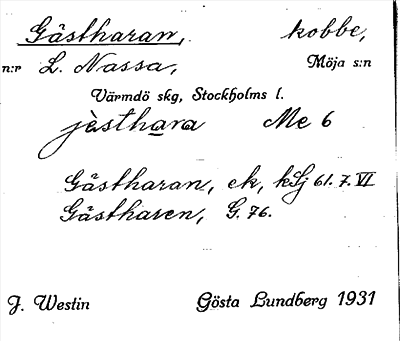 Gästharan, kobbe,
n:r L. Nassa, Möja s:n
Värmdö skg, Stockholms l.
jästhara Me 6
Gästharan, ek, kSj 61.7.VI
Gästharen, G. 76.
J. Westin Gösta Lundberg 1931